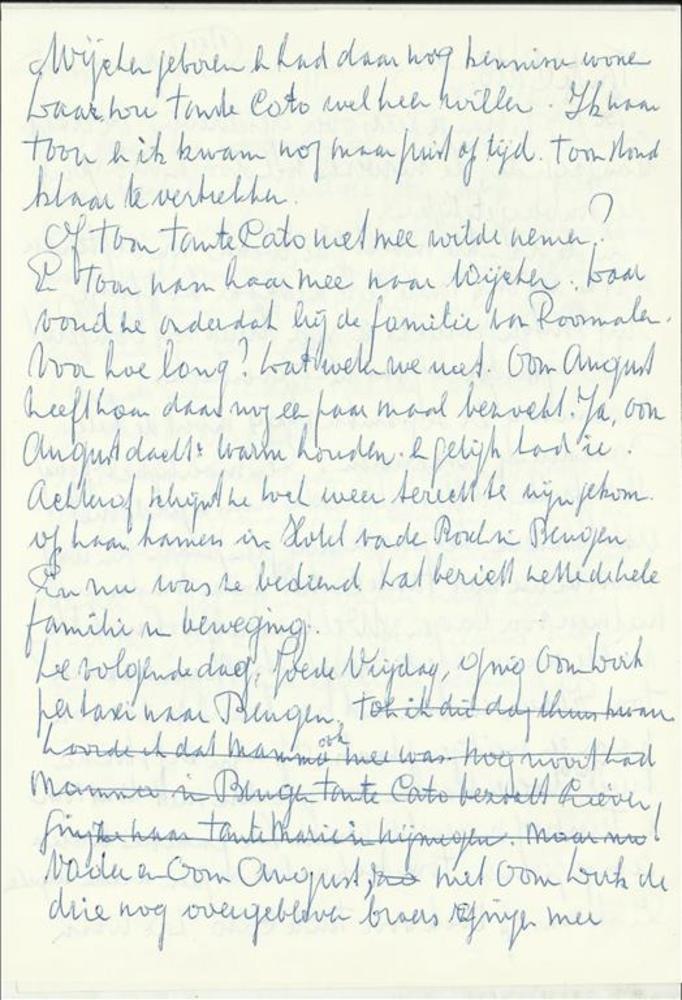 Wijchen geboren & had daar nog kennissen wonen
daar zou Tante Cato wel heen willen. Ik naar
Toon & ik kwam nog maar juist op tijd. Toon stond
klaar te vertrekken.
Of Toon Tante Cato niet mee wilde nemen?
En Toon nam haar mee naar Wijchen. Daar
vond ze onderdak bij de familie van Roosmalen.
Voor hoe lang? Dat weten we niet. Oom August
heeft haar daar nog een paar maal bezocht. Ja, oom
August dacht: warm houden. & gelijk had ie.
Achteraf schijnt ze toch weer terecht te zijn gekomen
op haar kamers in Hotel v.d. Bosch in Beugen
En nu was ze bediend dat bericht zette de hele
familie in beweging.
De volgende dag, Goede Vrijdag, ging Oom Dirk
per taxi naar Beugen, toen ik die dag thuis kwam
hoorde ik dat Mamma ook mee was. Nog nooit had
Mamma in Beugen Tante Cato bezocht. Liever
ging ze naar Tante Marie in Nijmegen. Maar nu!
Vader en Oom August, met Oom Dirk de
drie nog overgebleven broers gingen mee